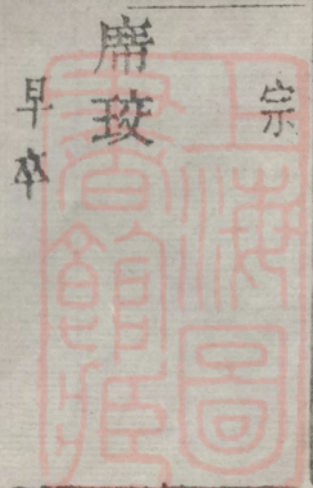 宗
席珓
早卒
上海圖
書館藏